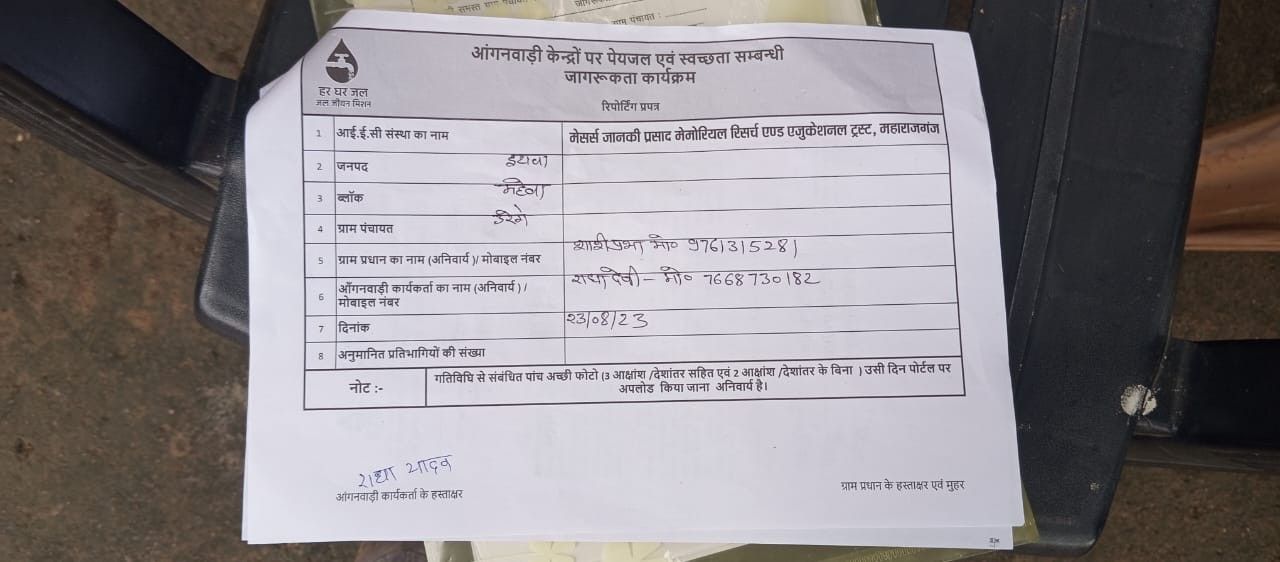 ग्राम पंचायत :
आंगनवाड़ी केन्द्रों पर पेयजल एवं स्वच्छता सम्बन्धी
जागरूकता कार्यक्रम
रिपोर्टिंग प्रपत्र
हर घर जल
जल जीवन मिशन
1 आई.ई.सी संस्था का नाम मेसर्स जानकी प्रसाद मेमोरियल रिसर्च एण्ड एजुकेशनल ट्रस्ट, महाराजगंज
2 जनपद इटावा
3 ब्लॉक महेवा
4 ग्राम पंचायत
5 ग्राम प्रधान का नाम (अनिवार्य )/ मोबाइल नंबर मो० 9761315281
6 आँगनवाड़ी कार्यकर्ता का नाम (अनिवार्य ) / राधा देवी – मो० 7668730182
मोबाइल नंबर
7 दिनांक 23/08/23
8 अनुमानित प्रतिभागियों की संख्या
नोट :- गतिविधि से संबंधित पांच अच्छी फोटो (3 आक्षांश /देशांतर सहित एवं 2 आक्षांश /देशांतर के बिना ) उसी दिन पोर्टल पर
अपलोड किया जाना अनिवार्य है।
राधा यादव
आंगनवाड़ी कार्यकर्ता के हस्ताक्षर ग्राम प्रधान के हस्ताक्षर एवं मुहर